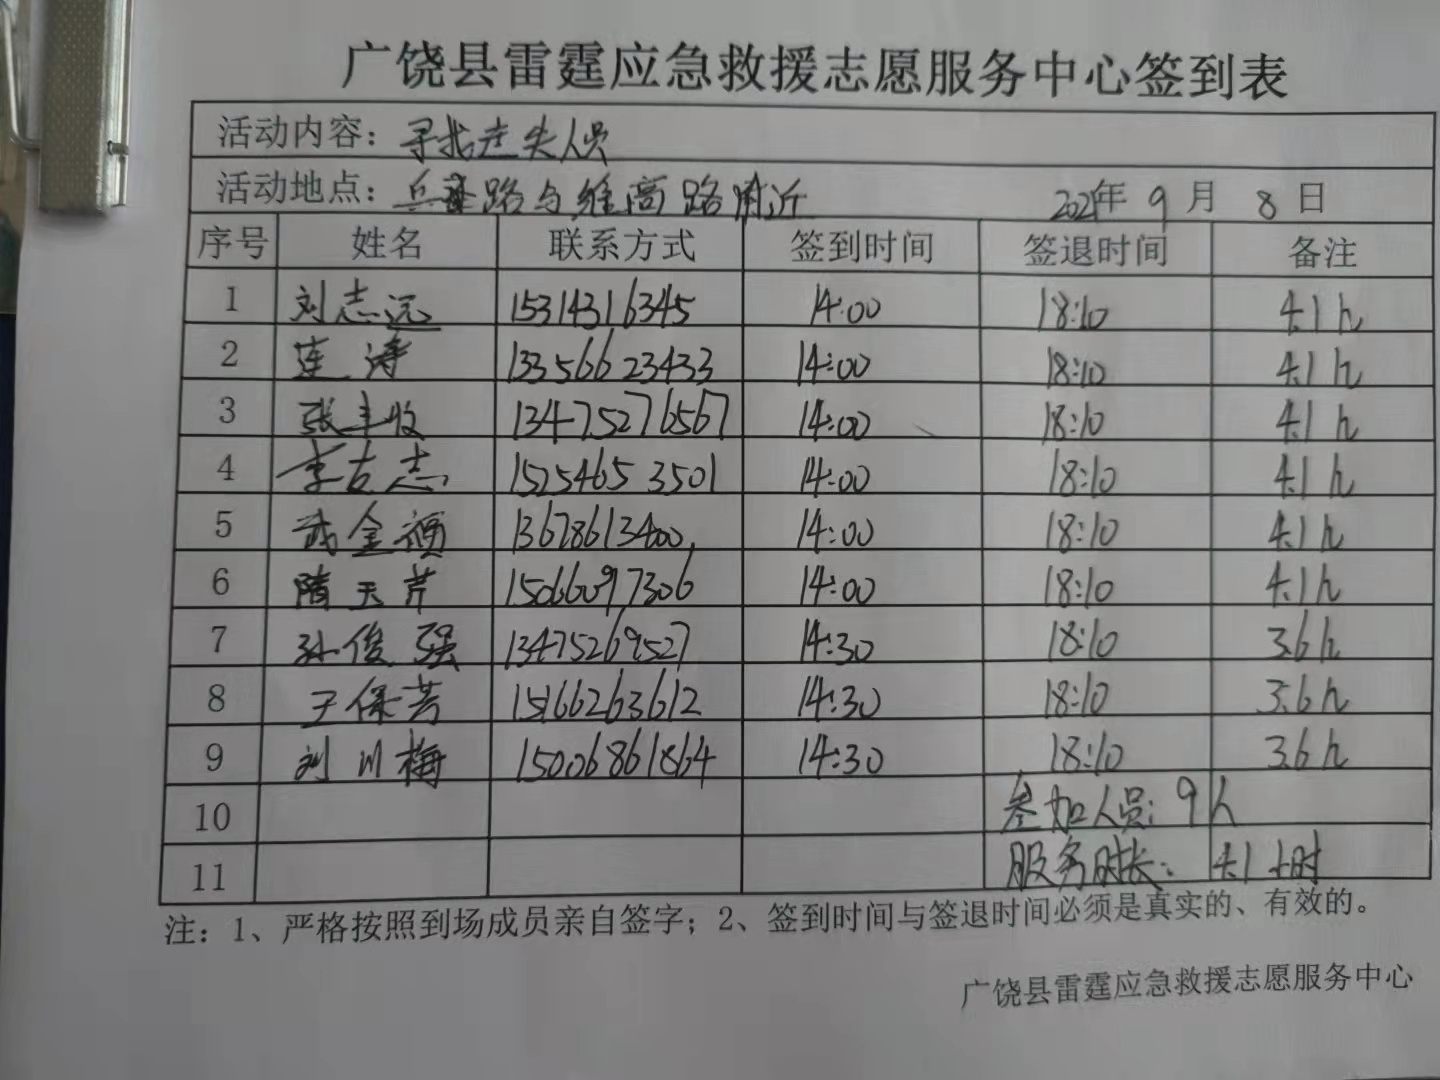 广饶县雷霆应急救援志愿服务中心签到表
活动内容：寻找走失人员
活动地点：兵圣路与维高路附近 2021年 9 月 8 日
序号 姓名 联系方式 签到时间 签退时间 备注
1 刘志远 15314316345 14:00 18:10 4.1h
2 莲涛 13356623433 14:00 18:10 4.1h
3 张丰收 13475276567 14:00 18:10 4.1h
4 李古志 15254653501 14:00 18:10 4.1h
5 金 13678613400 14:00 18:10 4.1h
6 隋玉芹 15066097306 14:00 18:10 4.1h
7 孙俊强 13475269527 14:30 18:10 3.6h
8 王保芳 15166263612 14:30 18:10 3.6h
9 刘川梅 15006861864 14:30 18:10 3.6h
10 参加人员：9人
11 服务时长：4.1小时
注：1、严格按照到场成员亲自签字；2、签到时间与签退时间必须是真实的、有效的。
广饶县雷霆应急救援志愿服务中心